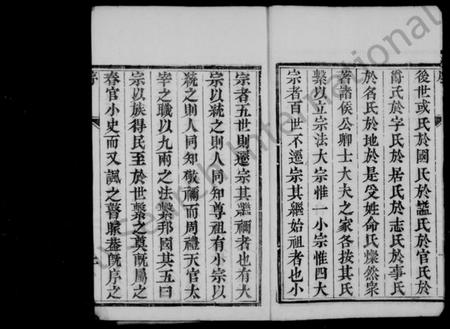 後世或氏於國氏於諡氏於官氏於
爵氏於字氏於居氏於志氏於事氏
於名氏於地於是受姓命氏燦然衆
著諸侯公卿士大夫之家各按其氏
繫以立宗法大宗惟一小宗惟四大
宗者百世不遷宗其繼始祖者也小
宗者五世則遷宗其繼禰者也有大
宗以統之則人同知尊祖有小宗以
統之則人同知敬禰而周禮天官太
宰之職以九兩之法繫邦國其五曰
宗以族得民至於世繫之奠既屬之
春官小史而又諷之瞽矇蓋旣序之
序